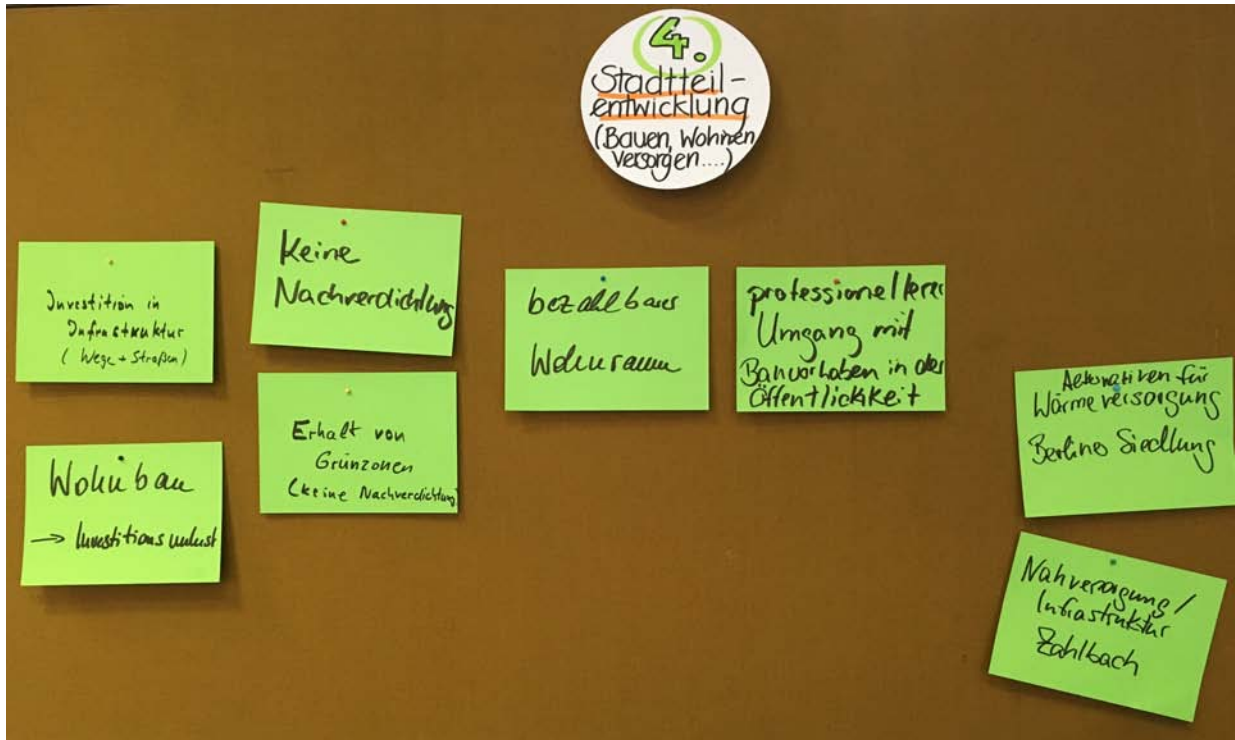 4.
Stadtteil-
entwicklung
(Bauen, Wohnen
versorgen....)
Investition in
Infrastruktur
(Wege + Straßen)
Wohnbau
→ Investitionsunlust
Keine
Nachverdichtung
Erhalt von
Grünzonen
(keine Nachverdichtung)
bezahlbarer
Wohnraum
professionellerer
Umgang mit
Bauvorhaben in der
Öffentlichkeit
Alternativen für
Wärmeversorgung
Berliner Siedlung
Nahversorgung/
Infrastruktur
Zahlbach